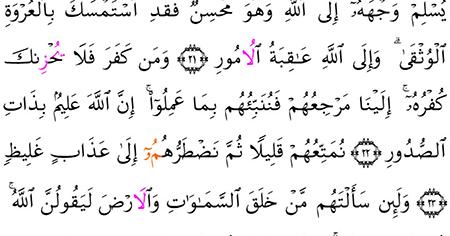 يُسْلِمْ وَجْهَهُۥٓ إِلَى اَللَّهِ وَهُوَ مُحْسِنٌ فَقَدِ اِسْتَمْسَكَ بِالْعُرْوَةِ
اِلْوُثْقَىٰۖ وَإِلَى اَللَّهِ عَٰقِبَةُ اُلُامُورِ ﴿٢١﴾ وَمَن كَفَرَ فَلَا يُحْزِنكَ
كُفْرُهُۥٓۖ إِلَيْنَا مَرْجِعُهُمْ فَنُنَبِّئُهُم بِمَا عَمِلُوٓاْۖ إِنَّ اَللَّهَ عَلِيمُۢ بِذَاتِ
اِلصُّدُورِ ﴿٢٢﴾ نُمَتِّعُهُمْ قَلِيلًا ثُمَّ نَضْطَرُّهُمُۥٓ إِلَىٰ عَذَابٍ غَلِيظٍ
﴿٢٣﴾ وَلَئِن سَأَلْتَهُم مَّنْ خَلَقَ اَلسَّمَٰوَٰتِ وَالَارْضَ لَيَقُولُنَّ اَللَّهُۖ